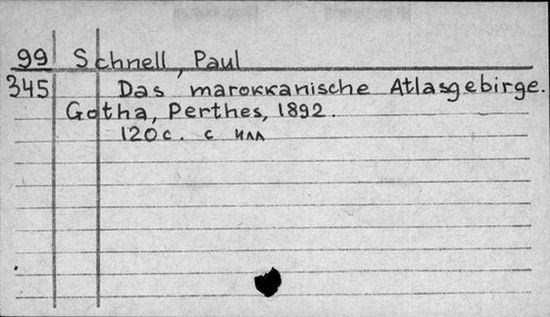 99 Schnell, Paul
345 Das marokkanische Atlasgebirge.
Gotha, Perthes, 1892.
120 с. с илл